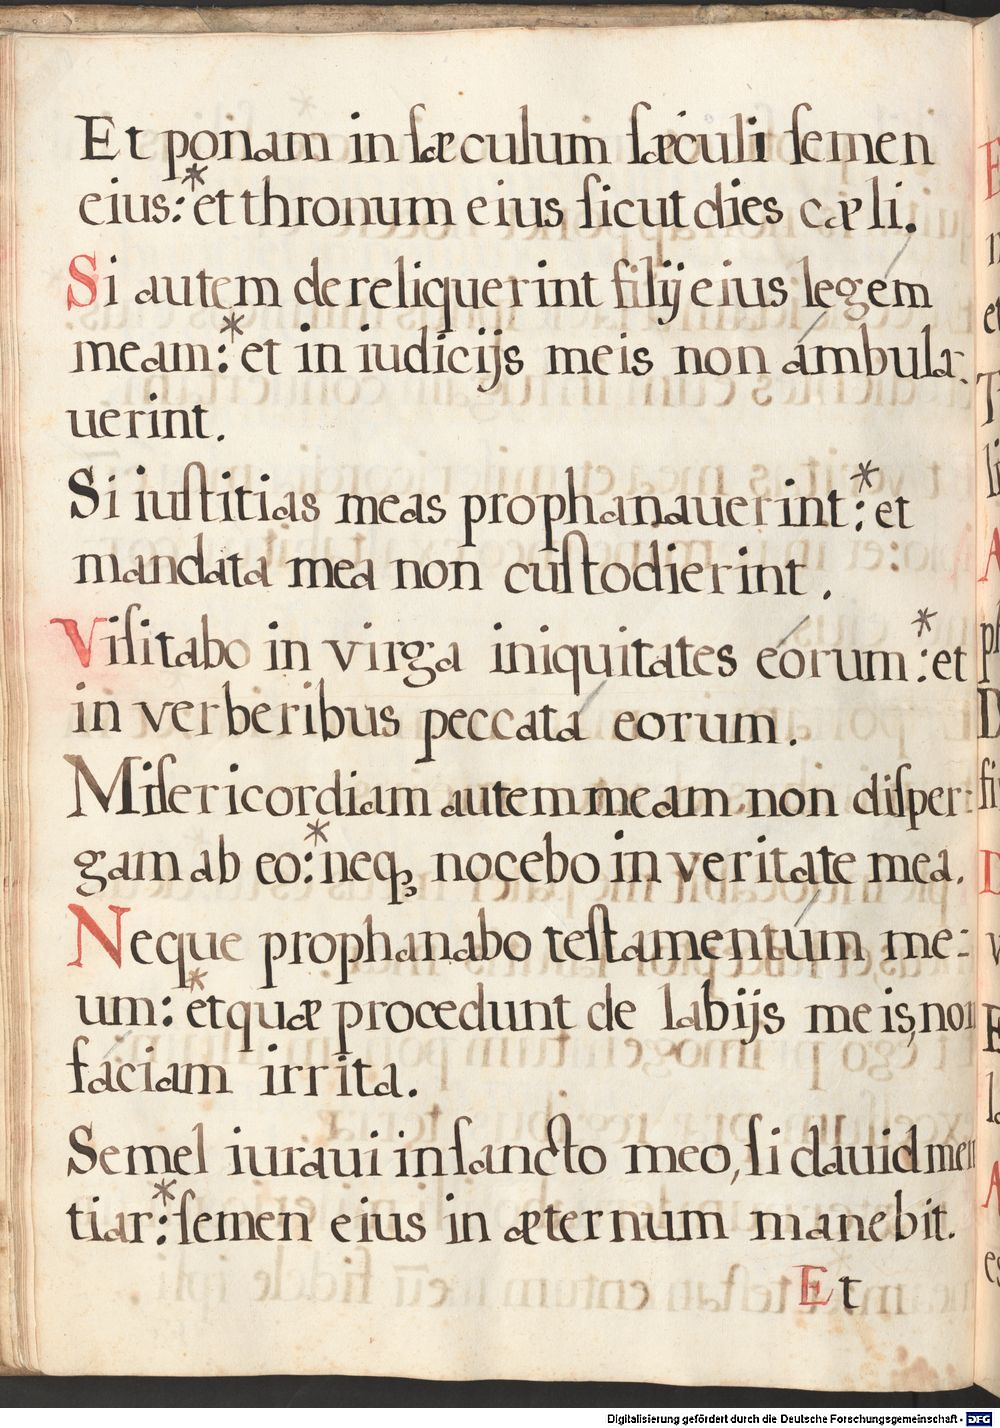 Et ponam in ſæculum ſæculi ſemen
eius:* et thronum eius ſicut dies cæli.
Si autem dereliquerint filij eius legem
meam:* et in iudicijs meis non ambula-
uerint.
Si iuſtitias meas prophanauerint:* et
mandata mea non cuſtodierint.
Viſitabo in virga iniquitates eorum:* et
in verberibus peccata eorum.
Miſericordiam autem meam non diſper-
gam ab eo:* neqꝫ nocebo in veritate mea.
Neque prophanabo teſtamentum me-
um:* et quæ procedunt de labijs meis, non
faciam irrita.
Semel iuraui in ſancto meo, ſi dauid men
tiar:* ſemen eius in æternum manebit.
Et
Digitalisierung gefördert durch die Deutsche Forschungsgemeinschaft - DFG